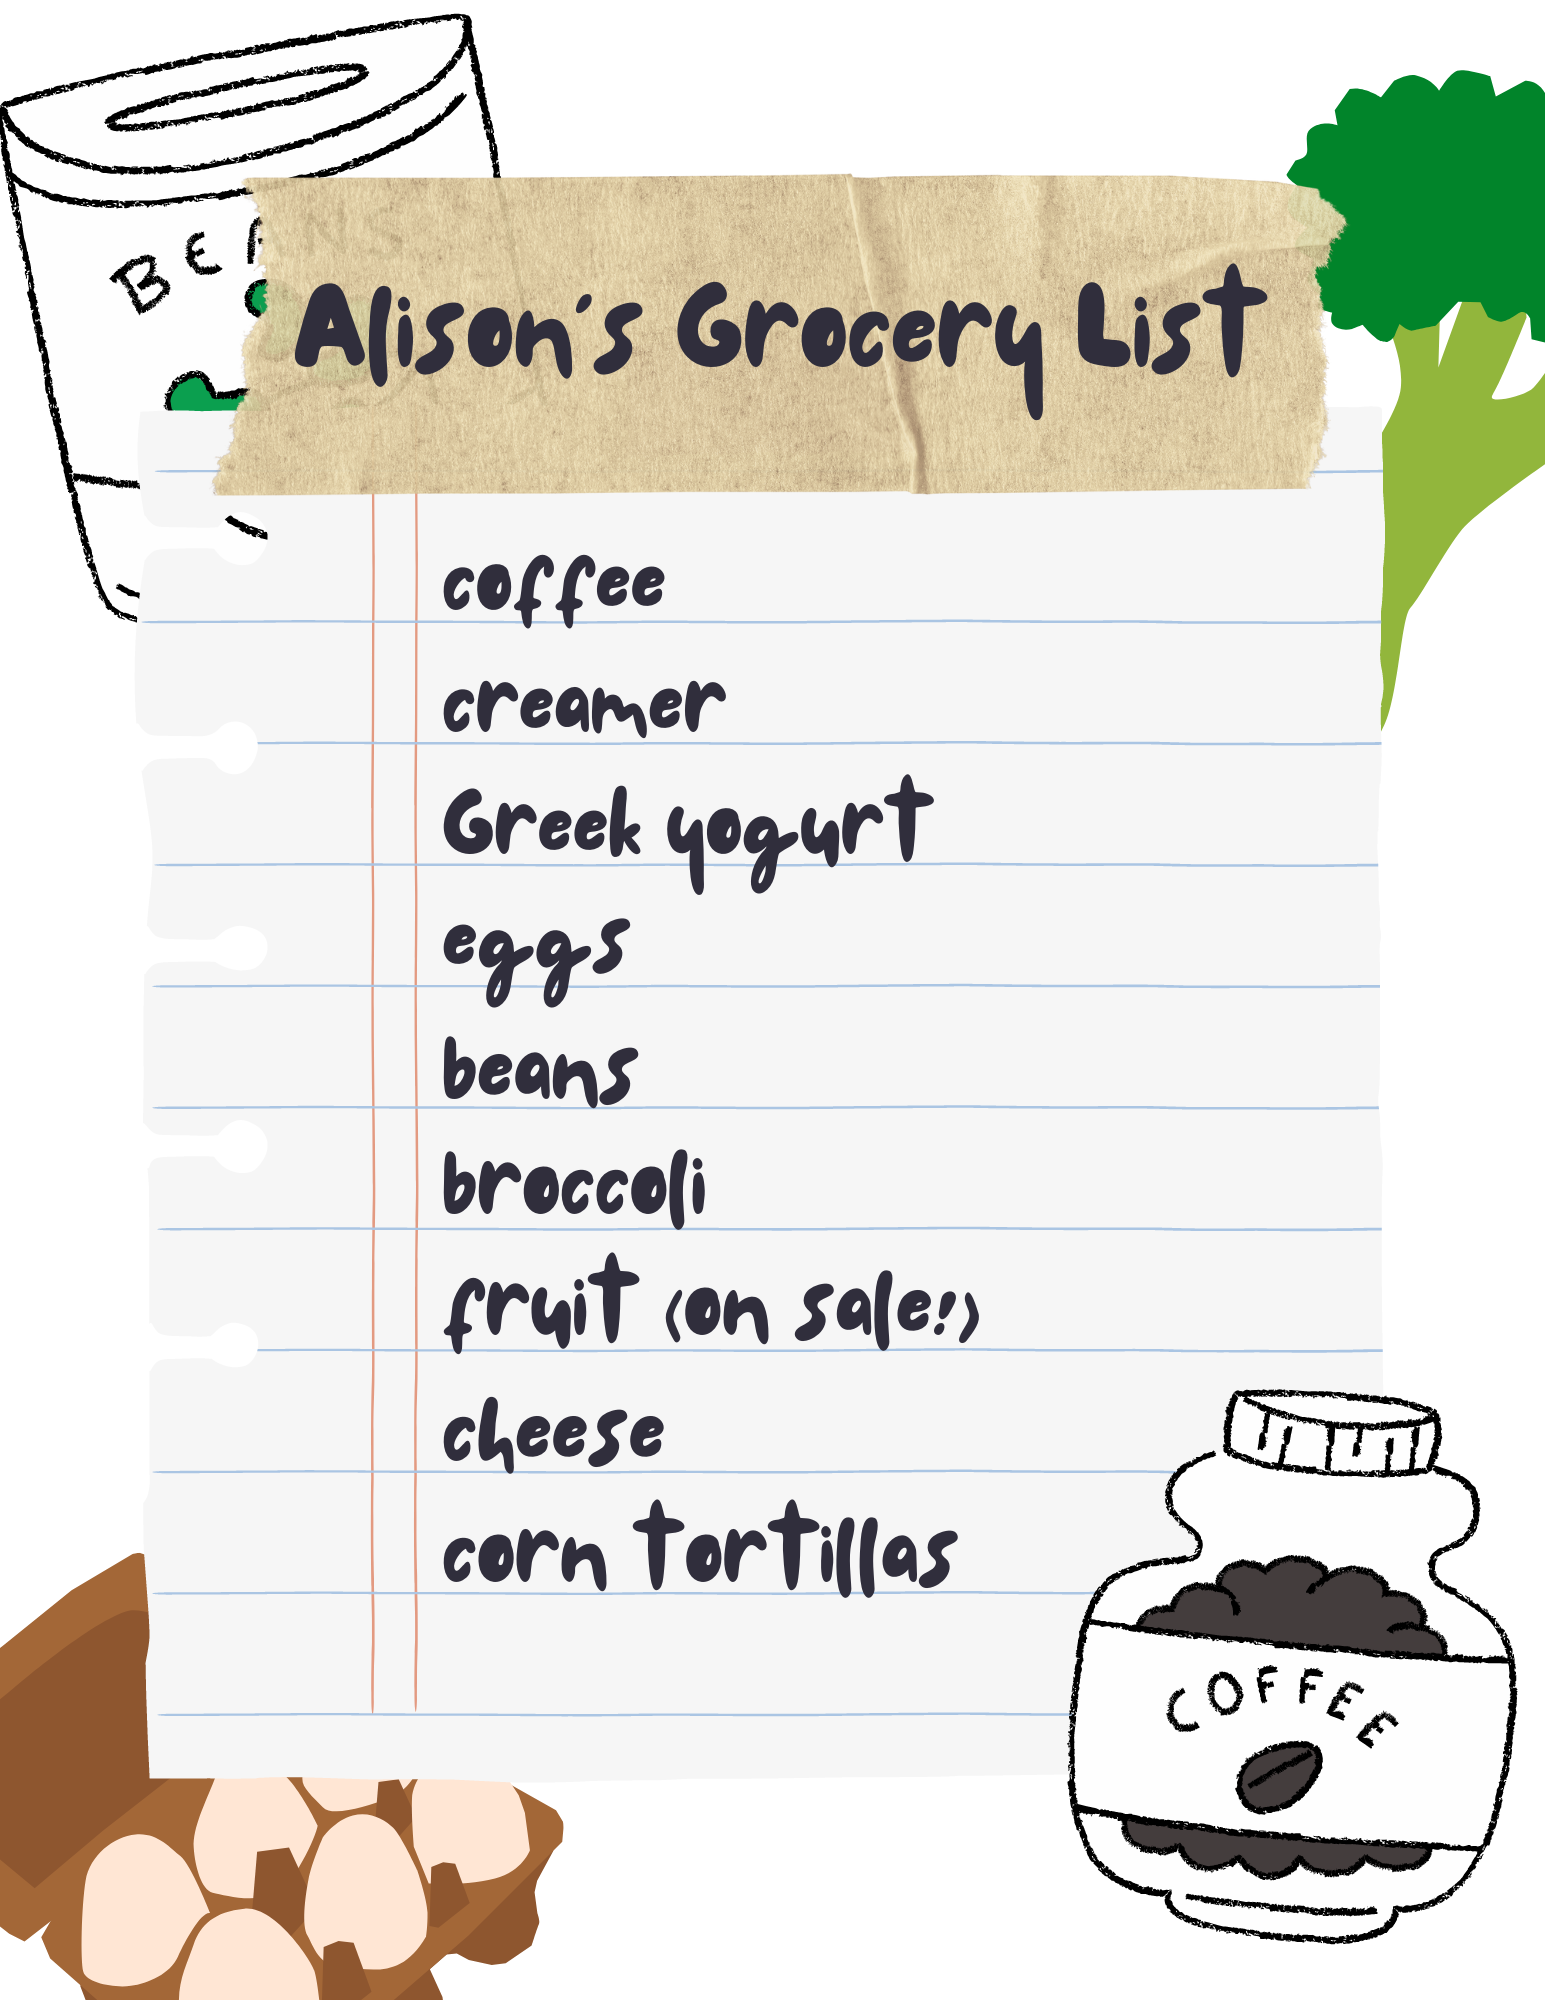 BEANS
Alison's Grocery List
coffee
creamer
Greek yogurt
eggs
beans
broccoli
fruit (on sale!)
cheese
corn tortillas
COFFEE